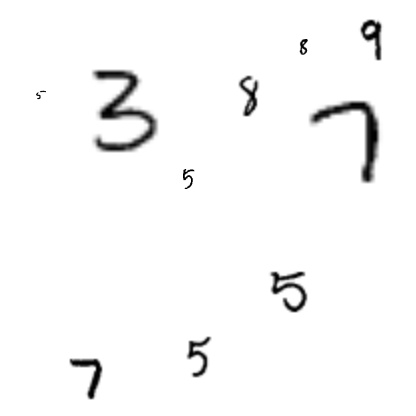 9
8
5 3 8 7
5
5
5
7